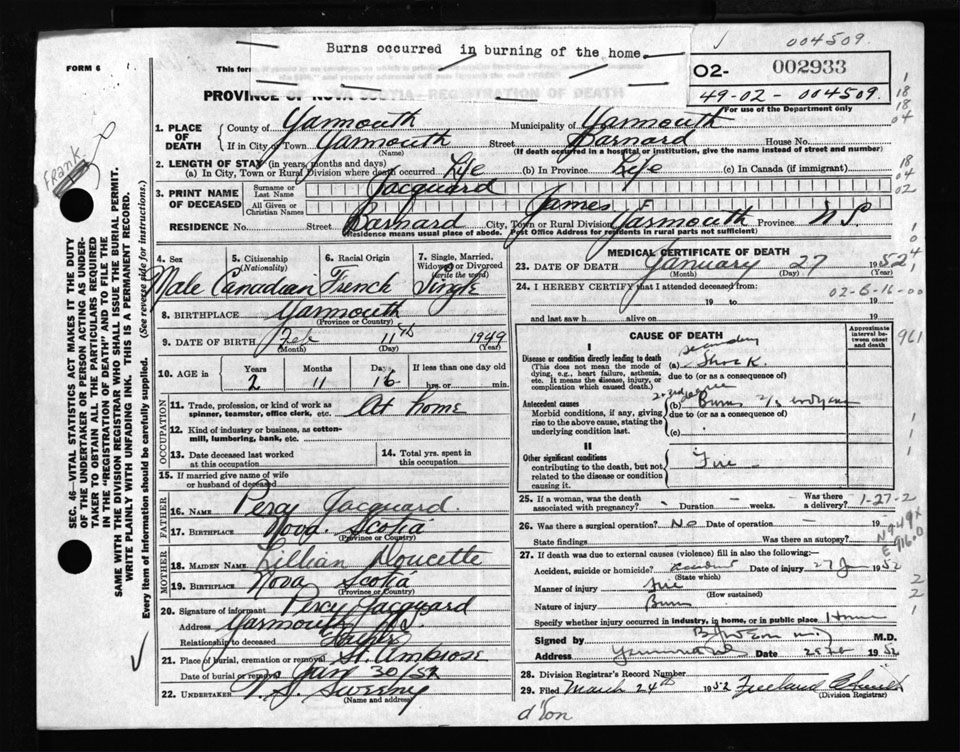 Burns occurred in burning of the home.
004509.
FORM 6
02- 002933
49-02-004509.
For use of the Department only
PROVINCE OF NOVA SCOTIA—REGISTRATION OF DEATH
Frank
1. PLACE OF DEATH
County of Yarmouth Municipality of Yarmouth
If in City or Town Yarmouth Street Barnard House No.
(Name) (If death occurred in a hospital or institution, give the name instead of street and number)
2. LENGTH OF STAY (in years, months and days)
(a) In City, Town or Rural Division where death occurred Life (b) In Province Life (c) In Canada (if immigrant)
3. PRINT NAME OF DECEASED
Surname or Last Name Jacquard
All Given or Christian Names James F
RESIDENCE No. Street Barnard City, Town or Rural Division Yarmouth Province N.S.
(Residence means usual place of abode. Post Office Address for residents in rural parts not sufficient)
4. Sex 5. Citizenship (Nationality) 6. Racial Origin 7. Single, Married, Widowed or Divorced (write the word)
Male Canadian French Single
8. BIRTHPLACE Yarmouth
(Province or Country)
9. DATE OF BIRTH Feb 11th 1949
(Month) (Day) (Year)
10. AGE in Years Months Days If less than one day old
2 11 16 hrs. or min.
OCCUPATION
11. Trade, profession, or kind of work as spinner, teamster, office clerk, etc. At home
12. Kind of industry or business, as cotton-mill, lumbering, bank, etc.
13. Date deceased last worked at this occupation
14. Total yrs. spent in this occupation
15. If married give name of wife or husband of deceased
FATHER
16. NAME Percy Jacquard.
17. BIRTHPLACE Nova Scotia
(Province or Country)
MOTHER
18. MAIDEN NAME Lillian Doucette
19. BIRTHPLACE Nova Scotia
(Province or Country)
20. Signature of informant Percy Jacquard
Address Yarmouth N.S.
Relationship to deceased Father
21. Place of burial, cremation or removal St. Ambrose
Date of burial or removal Jan 30/52
22. UNDERTAKER V. S. Sweeny
(Name and address)
MEDICAL CERTIFICATE OF DEATH
23. DATE OF DEATH January 27 1952
(Month) (Day) (Year)
24. I HEREBY CERTIFY that I attended deceased from:
19 to 19
and last saw h alive on 19
02-6-16-00
CAUSE OF DEATH
Approximate interval between onset and death
961
I
Disease or condition directly leading to death
(This does not mean the mode of dying, e.g., heart failure, asthenia, etc. It means the disease, injury, or complication which caused death.)
(a) secondary Shock
due to (or as a consequence of)
Antecedent causes
Morbid conditions, if any, giving rise to the above cause, stating the underlying condition last.
(b) Burns 2/3
due to (or as a consequence of)
(c)
II
Other significant conditions
contributing to the death, but not related to the disease or condition causing it.
Fire
25. If a woman, was the death associated with pregnancy? - Duration - weeks. Was there a delivery? -
1-27-2
26. Was there a surgical operation? No Date of operation - 19
State findings Was there an autopsy?
27. If death was due to external causes (violence) fill in also the following:—
Accident, suicide or homicide? Accident Date of injury 27 Jan 1952
(State which)
Manner of injury Fire
(How sustained)
Nature of injury Burns
Specify whether injury occurred in industry, in home, or in public place Home
Signed by M.D.
Address Yarmouth Date 1952
28. Division Registrar's Record Number
29. Filed March 24th 1952
(Division Registrar)
SEC. 46—VITAL STATISTICS ACT MAKES IT THE DUTY OF THE UNDERTAKER OR PERSON ACTING AS UNDERTAKER TO OBTAIN ALL THE PARTICULARS REQUIRED IN THE "REGISTRATION OF DEATH" AND TO FILE THE SAME WITH THE DIVISION REGISTRAR WHO SHALL ISSUE THE BURIAL PERMIT.
WRITE PLAINLY WITH UNFADING INK. THIS IS A PERMANENT RECORD.
Every item of Information should be carefully supplied. (See reverse side for instructions.)